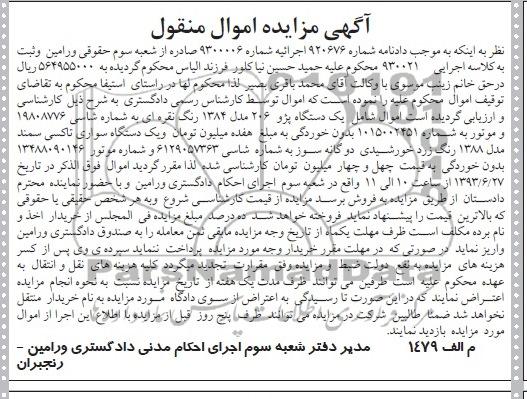 آگهی مزایده اموال منقول
نظر به اینکه به موجب دادنامه شماره ۹۲۰۶۷۶ اجرائیه شماره ۹۳۰۰۰۰۶ صادره از شعبه سوم حقوقی ورامین وثبت
به کلاسه اجرایی ۹۳۰۰۲۱ محکوم علیه حمید حسین نیا کلور فرزند الیاس محکوم گردیده به ۵۶۴۹۵۵۰۰۰ ریال
درحق خانم زینت موسوی با وکالت آقای محمد باقری بصیر لذا محکوم لها در راستای استیفا محکوم به تقاضای
توقیف اموال محکوم علیه را نموده است که اموال توسط کارشناس رسمی دادگستری به شرح ذیل کارشناسی
و ارزیابی گردیده است اموال شامل یک دستگاه پژو ۲۰۶ مدل ۱۳۸۴ رنگ نقره ای به شماره شاسی ۱۹۸۰۸۷۷۶
و موتور به شماره ۱۰۱۵۰۰۲۴۵۱ بدون خوردگی به مبلغ هفده میلیون تومان ویک دستگاه سواری تاکسی سمند
مدل ۱۳۸۸ رنگ زرد خورشیدی دوگانه سوز به شماره شاسی ۶۱۲۹۰۵۷۳۶۳ و شماره موتور ۱۳۴۸۸۰۹۰۱۴۶
بدون خوردگی به قیمت چهل و چهار میلیون تومان کارشناسی شده لذا مقرر گردید اموال فوق الذکر در تاریخ
۱۳۹۳/۶/۲۷ از ساعت ۱۰ الی ۱۱ واقع در شعبه سوم اجرای احکام دادگستری ورامین و با حضور نماینده محترم
دادستان از طریق مزایده به فروش برسد مزایده از قیمت کارشناسی شروع وبه هر شخص حقیقی یا حقوقی
که بالاترین قیمت را پیشنهاد نماید فروخته خواهد شد ده درصد مبلغ مزایده فی المجلس از خریدار اخذ و
نام برده مکلف است ظرف مهلت یکماه از تاریخ وجه مزایده مابقی ثمن معامله را به صندوق دادگستری ورامین
واریز نماید در صورتی که در مهلت مقرر خریدار وجه مورد مزایده پرداخت ننماید سپرده ی وی پس از کسر
هزینه های مزایده به نفع دولت ضبط و مزایده وفق مقرارت تجدید میگردد کلیه هزینه های نقل و انتقال به
عهده محکوم علیه است طرفین می توانند ظرف مدت یک هفته از تاریخ مزایده نسبت به نحوه انجام مزایده
اعتراض نمایند که در این صورت تا رسیدگی به اعتراض از سوی دادگاه مورد مزایده به نام خریدار منتقل
نخواهد شد ضمنا طالبین شرکت در مزایده می توانند ظرف پنج روز قبل از مزایده با اطلاع این اجرا از اموال
مورد مزایده بازدید نمایند.
م الف ۱۴۷۹ مدیر دفتر شعبه سوم اجرای احکام مدنی دادگستری ورامین -
رنجبران